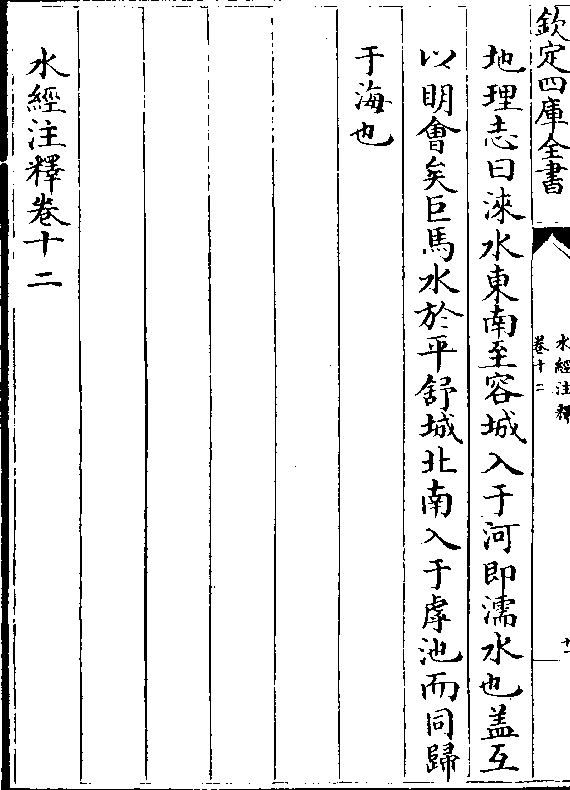 欽定四庫全書
水經注釋
卷十二
十一
地理志曰淶水東南至容城入于河即濡水也蓋互
以明會矣巨馬水於平舒城北南入于虖池而同歸
于海也
水經注釋卷十二